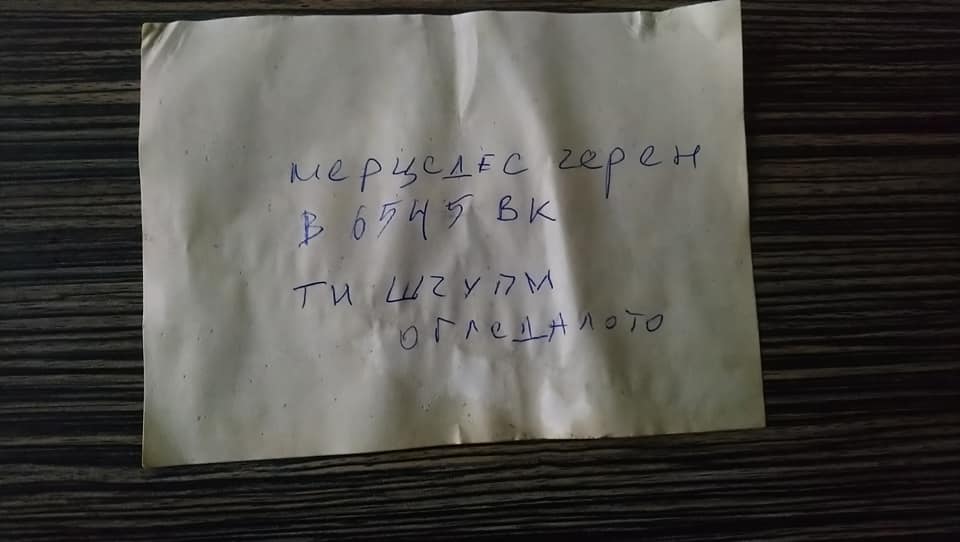 мерцедес черен
В 6545 ВК
ти щчупи
огледалото